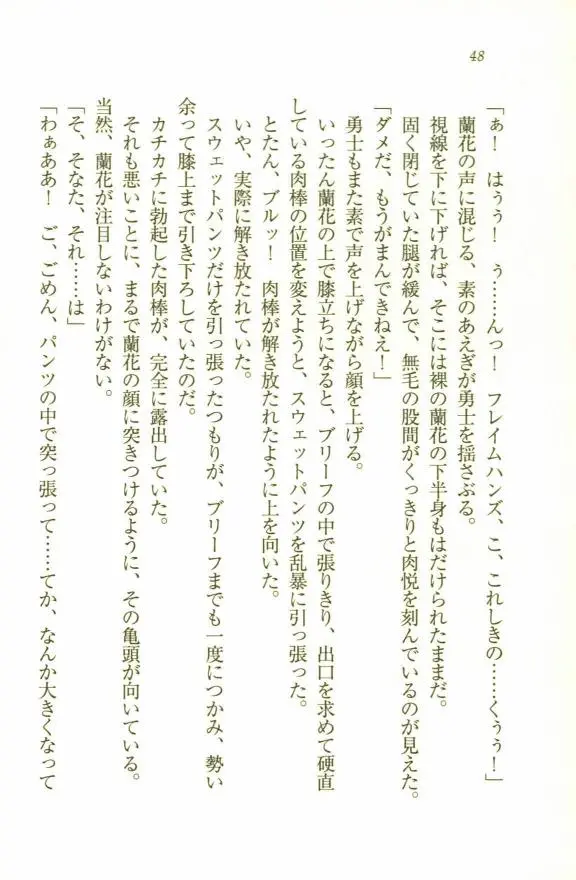 48
「ぁ！　はぅぅ！　ぅ……んっ！　フレイムハンズ、こ、これしきの……くぅぅ！」
蘭花の声に混じる、素のあえぎが勇士を揺さぶる。
視線を下に下げれば、そこには裸の蘭花の下半身もはだけられたままだ。
固く閉じていた腿が緩んで、無毛の股間がくっきりと肉悦を刻んでいるのが見えた。
「ダメだ、もうがまんできねえ！」
勇士もまた素で声を上げながら顔を上げる。
いったん蘭花の上で膝立ちになると、ブリーフの中で張りきり、出口を求めて硬直
している肉棒の位置を変えようと、スウェットパンツを乱暴に引っ張った。
とたん、ブルッ！　肉棒が解き放たれたように上を向いた。
いや、実際に解き放たれていた。
スウェットパンツだけを引っ張ったつもりが、ブリーフまでも一度につかみ、勢い
余って膝上まで引き下ろしていたのだ。
カチカチに勃起した肉棒が、完全に露出していた。
それも悪いことに、まるで蘭花の顔に突きつけるように、その亀頭が向いている。
当然、蘭花が注目しないわけがない。
「そ、そなた、それ……は」
「わぁああ！　ご、ごめん、パンツの中で突っ張って……てか、なんか大きくなって